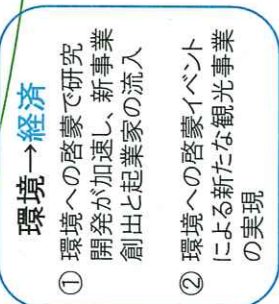 環境→経済
① 環境への啓蒙で研究
開発が加速し、新事業
創出と起業家の流入
② 環境への啓蒙イベント
による新たな観光事業
の実現